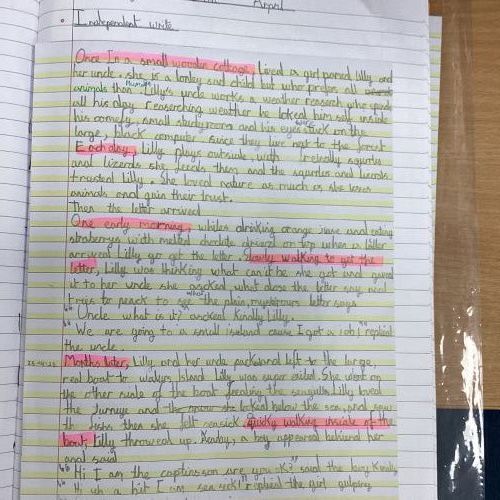 April
• Independent write
Once In a small wooden cottage, lived a girl named Lilly and
her uncle. she is a lonley and child but who prefers all
animals than human. Lilly's uncle works a weather reaserch who spends
all his day reaserching weather he locked him self inside
his comefy, small study room and his eyes were stuck on the
large, black computer. Since they live next to the forest
Each day, Lilly plays outside, with freindly squirrles
and lizerds she feeds them and the squirrles and lizerds
trusted Lilly. She loved nature as much as she loves
animals and gain their trust.
Then the letter arrived
One early morning, whiles drinking orange juice and eating
strabarys with melted choclate on top when a letter
arrived Lilly go get the letter. Slowly walking to get the
letter, Lilly was thinking what can it be she got and gaved
it to her uncle she ascked what dose the letter say and
trys to peack to see what the plain, mysterours letter says.
"Uncle what is it?" asncked kindly Lilly.
"We are going to a small island cause I got a job," replied
the uncle.
Months later, Lilly and her uncle packed and left to the large,
real boat to island Lilly was super exited. She went on
the other side of the boat feeding the seagulls. Lilly loved
the and the she looked below the sea, and saw
fishs then she felt seasick. Quicky walking inside of the
boat, Lilly throwed up. Nearby, a boy appeared behind her
and said
"Hi I am the captins son are you ok?" said the boy kindly
a bit I am sea sick" the girl gulping